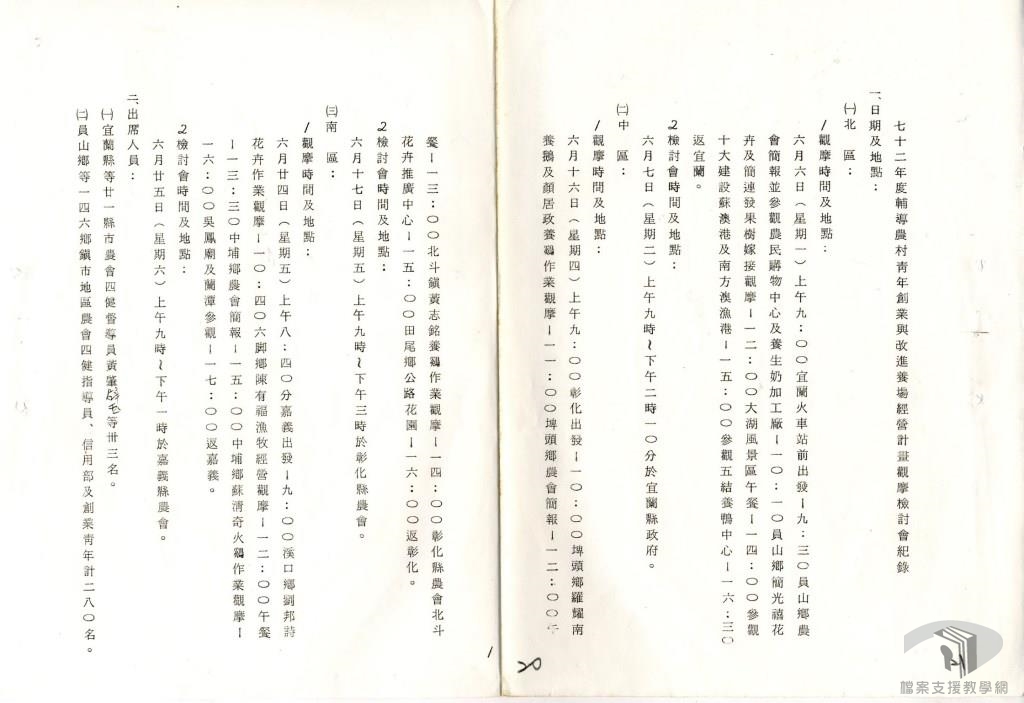 七十二年度輔導農村青年創業與改進養場經營計畫觀摩檢討會紀錄
一、日期及地點：
㈠北　區：
1觀摩時間及地點：
六月六日（星期一）上午九：〇〇宜蘭火車站前出發－九：三〇員山鄉農
會簡報並參觀農民購物中心及養生奶加工廠－一〇：一〇員山鄉簡光禧花
卉及簡連發果樹嫁接觀摩－一二：〇〇大湖風景區午餐－一四：〇〇參觀
十大建設蘇澳港及南方澳漁港－一五：〇〇參觀五結養鴨中心－一六：三〇
返宜蘭。
2檢討會時間及地點：
六月七日（星期二）上午九時～下午二時一〇分於宜蘭縣政府。
㈡中　區：
1觀摩時間及地點：
六月十六日（星期四）上午九：〇〇彰化出發－一〇：〇〇埤頭鄉羅耀南
養鵝及顏居政養鷄作業觀摩－一一：〇〇埤頭鄉農會簡報－一二：〇〇午
餐－一三：〇〇北斗鎮黃志銘養鷄作業觀摩－一四：〇〇彰化縣農會北斗
花卉推廣中心－一五：〇〇田尾鄉公路花園－一六：〇〇返彰化。
2檢討會時間及地點：
六月十七日（星期五）上午九時～下午三時於彰化縣農會。
㈢南　區：
1觀摩時間及地點：
六月廿四日（星期五）上午八：四〇分嘉義出發－九：〇〇溪口鄉劉邦詩
花卉作業觀摩－一〇：四〇六脚鄉陳有福漁牧經營觀摩－一二：〇〇午餐
－一三：三〇中埔鄉農會簡報－一五：〇〇中埔鄉蘇清奇火鷄作業觀摩－
一六：〇〇吳鳳廟及蘭潭參觀－一七：〇〇返嘉義。
2檢討會時間及地點：
六月廿五日（星期六）上午九時～下午一時於嘉義縣農會。
二、出席人員：
㈠宜蘭縣等廿一縣市農會四健督導員黃肇等卅三名。
㈡員山鄉等一四六鄉鎮市地區農會四健指導員、信用部及創業青年計二八〇名。
1
檔案支援教學網